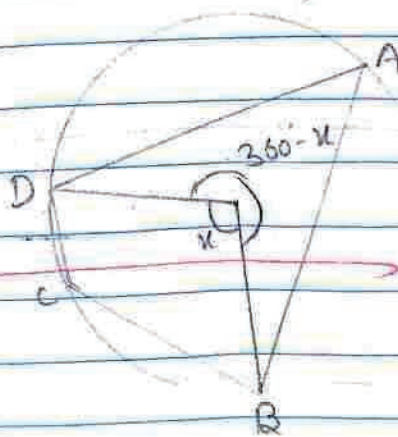 A
360-x
D
x
C
B